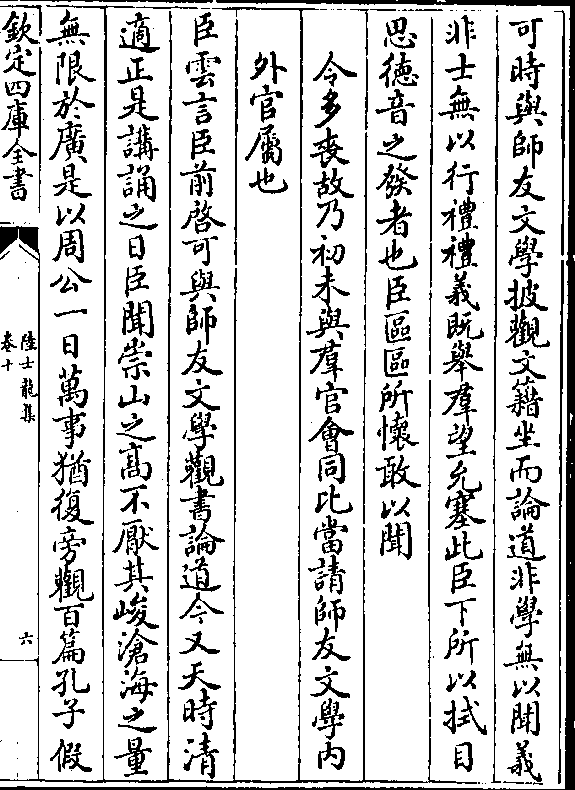 可時與師友文學披觀文籍坐而論道非學無以聞義
非士無以行禮禮義既舉羣望允塞此臣下所以拭目
思德音之發者也臣區區所懷敢以聞
令多喪故乃初未與羣官會同比當請師友文學内
外官屬也
臣雲言臣前啓可與師友文學觀書論道今又天時清
適正是講誦之日臣聞崇山之高不厭其峻滄海之量
無限於廣是以周公一日萬事猶復旁觀百篇孔子假
欽定四庫全書
陸士龍集
卷十
六